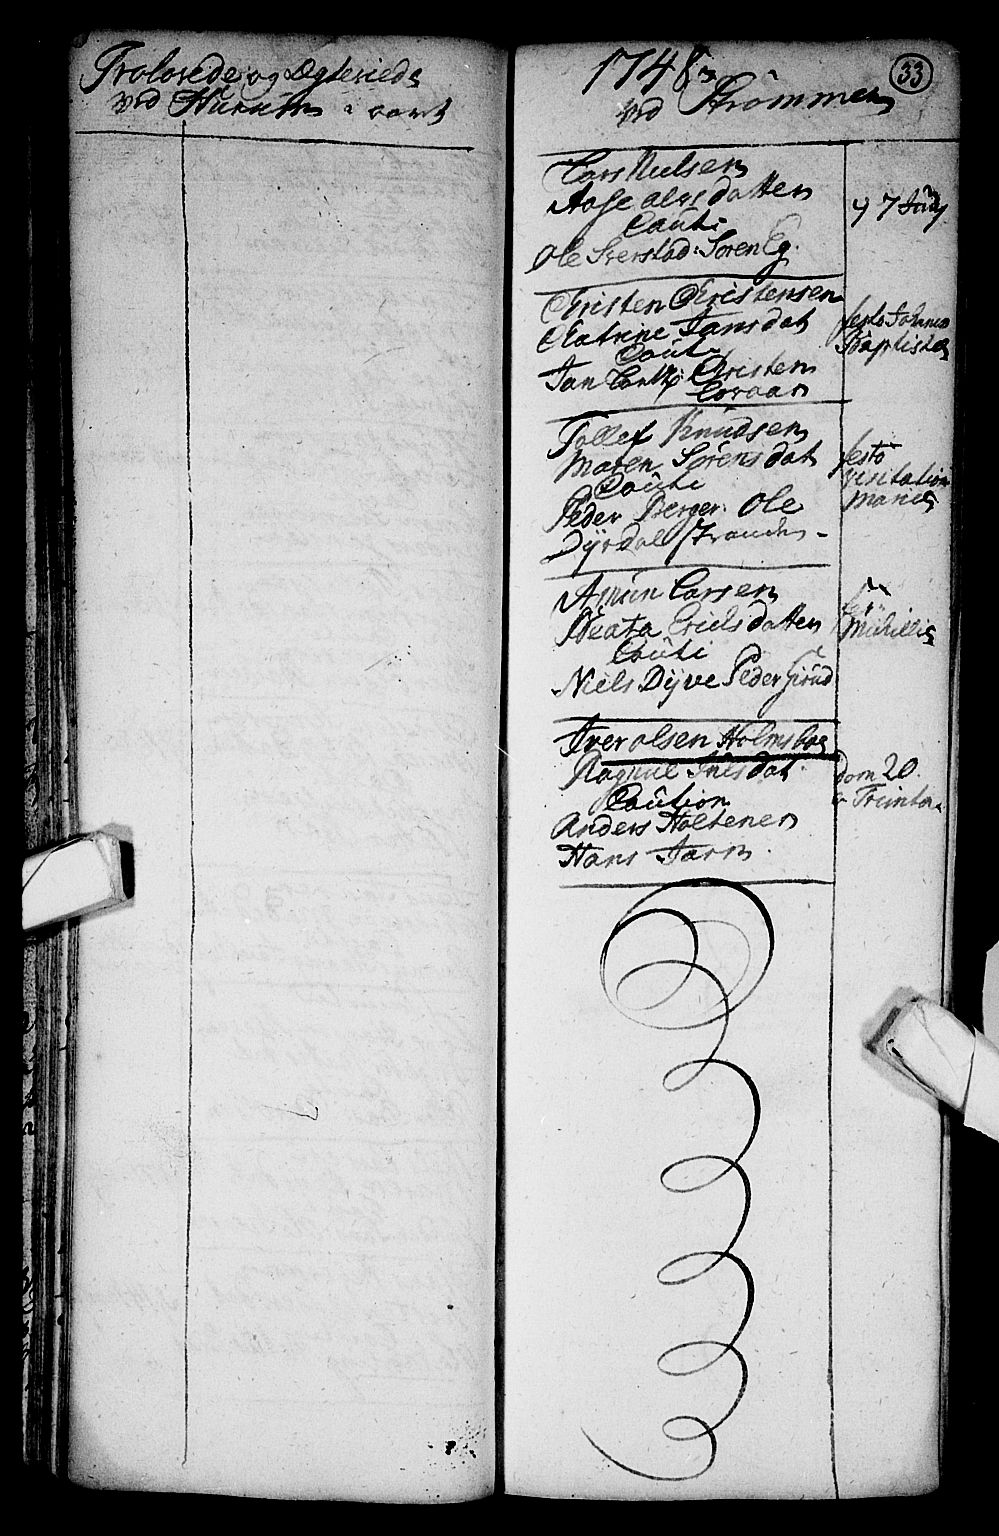 Trolovede og Ægteviede
ved Hurum
1748
ved Strømmen
33
Lars Nielsen
Aase Olesdatter
Cauti
Ole Sverstad: Søren Eg.
7 Juny
Christen Christensen
Catrine Jansdat
Cauti
Jan Christen
festo Johannis
Baptistæ
Tollef Knudsen
Maren Sørensdat
Cauti
Peder Berger. Ole
Dyrdal
festo
visitation
Mariæ
Amun Larsen
Beata Erichsdatter
Cauti
Niels Dyve Peder
Michillis
Iver Olsen Holmsboe
Ragnill Nilsdat
Caution
Anders Holtener
Hans
Dom 20.
Trinita